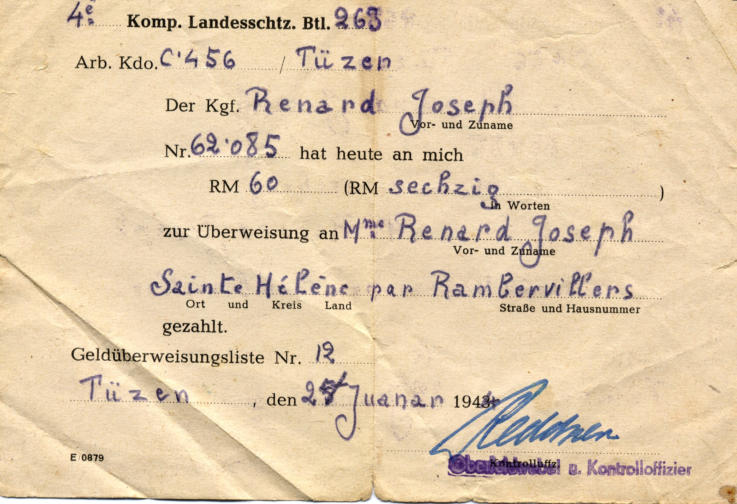 4e Komp. Landesschtz. Btl. 263
Arb. Kdo. C.456 / Tüzen
Der Kgf. Renard Joseph
Vor- und Zuname
Nr. 62.085 hat heute an mich
RM 60 (RM sechzig )
in Worten
zur Überweisung an Mme Renard Joseph
Vor- und Zuname
Sainte Hélène par Rambervillers
Ort und Kreis Land Straße und Hausnummer
gezahlt.
Geldüberweisungsliste Nr. 12
Tüzen, den Juanar 194
Kontrolloffz.
E/0879 u. Kontrolloffizier